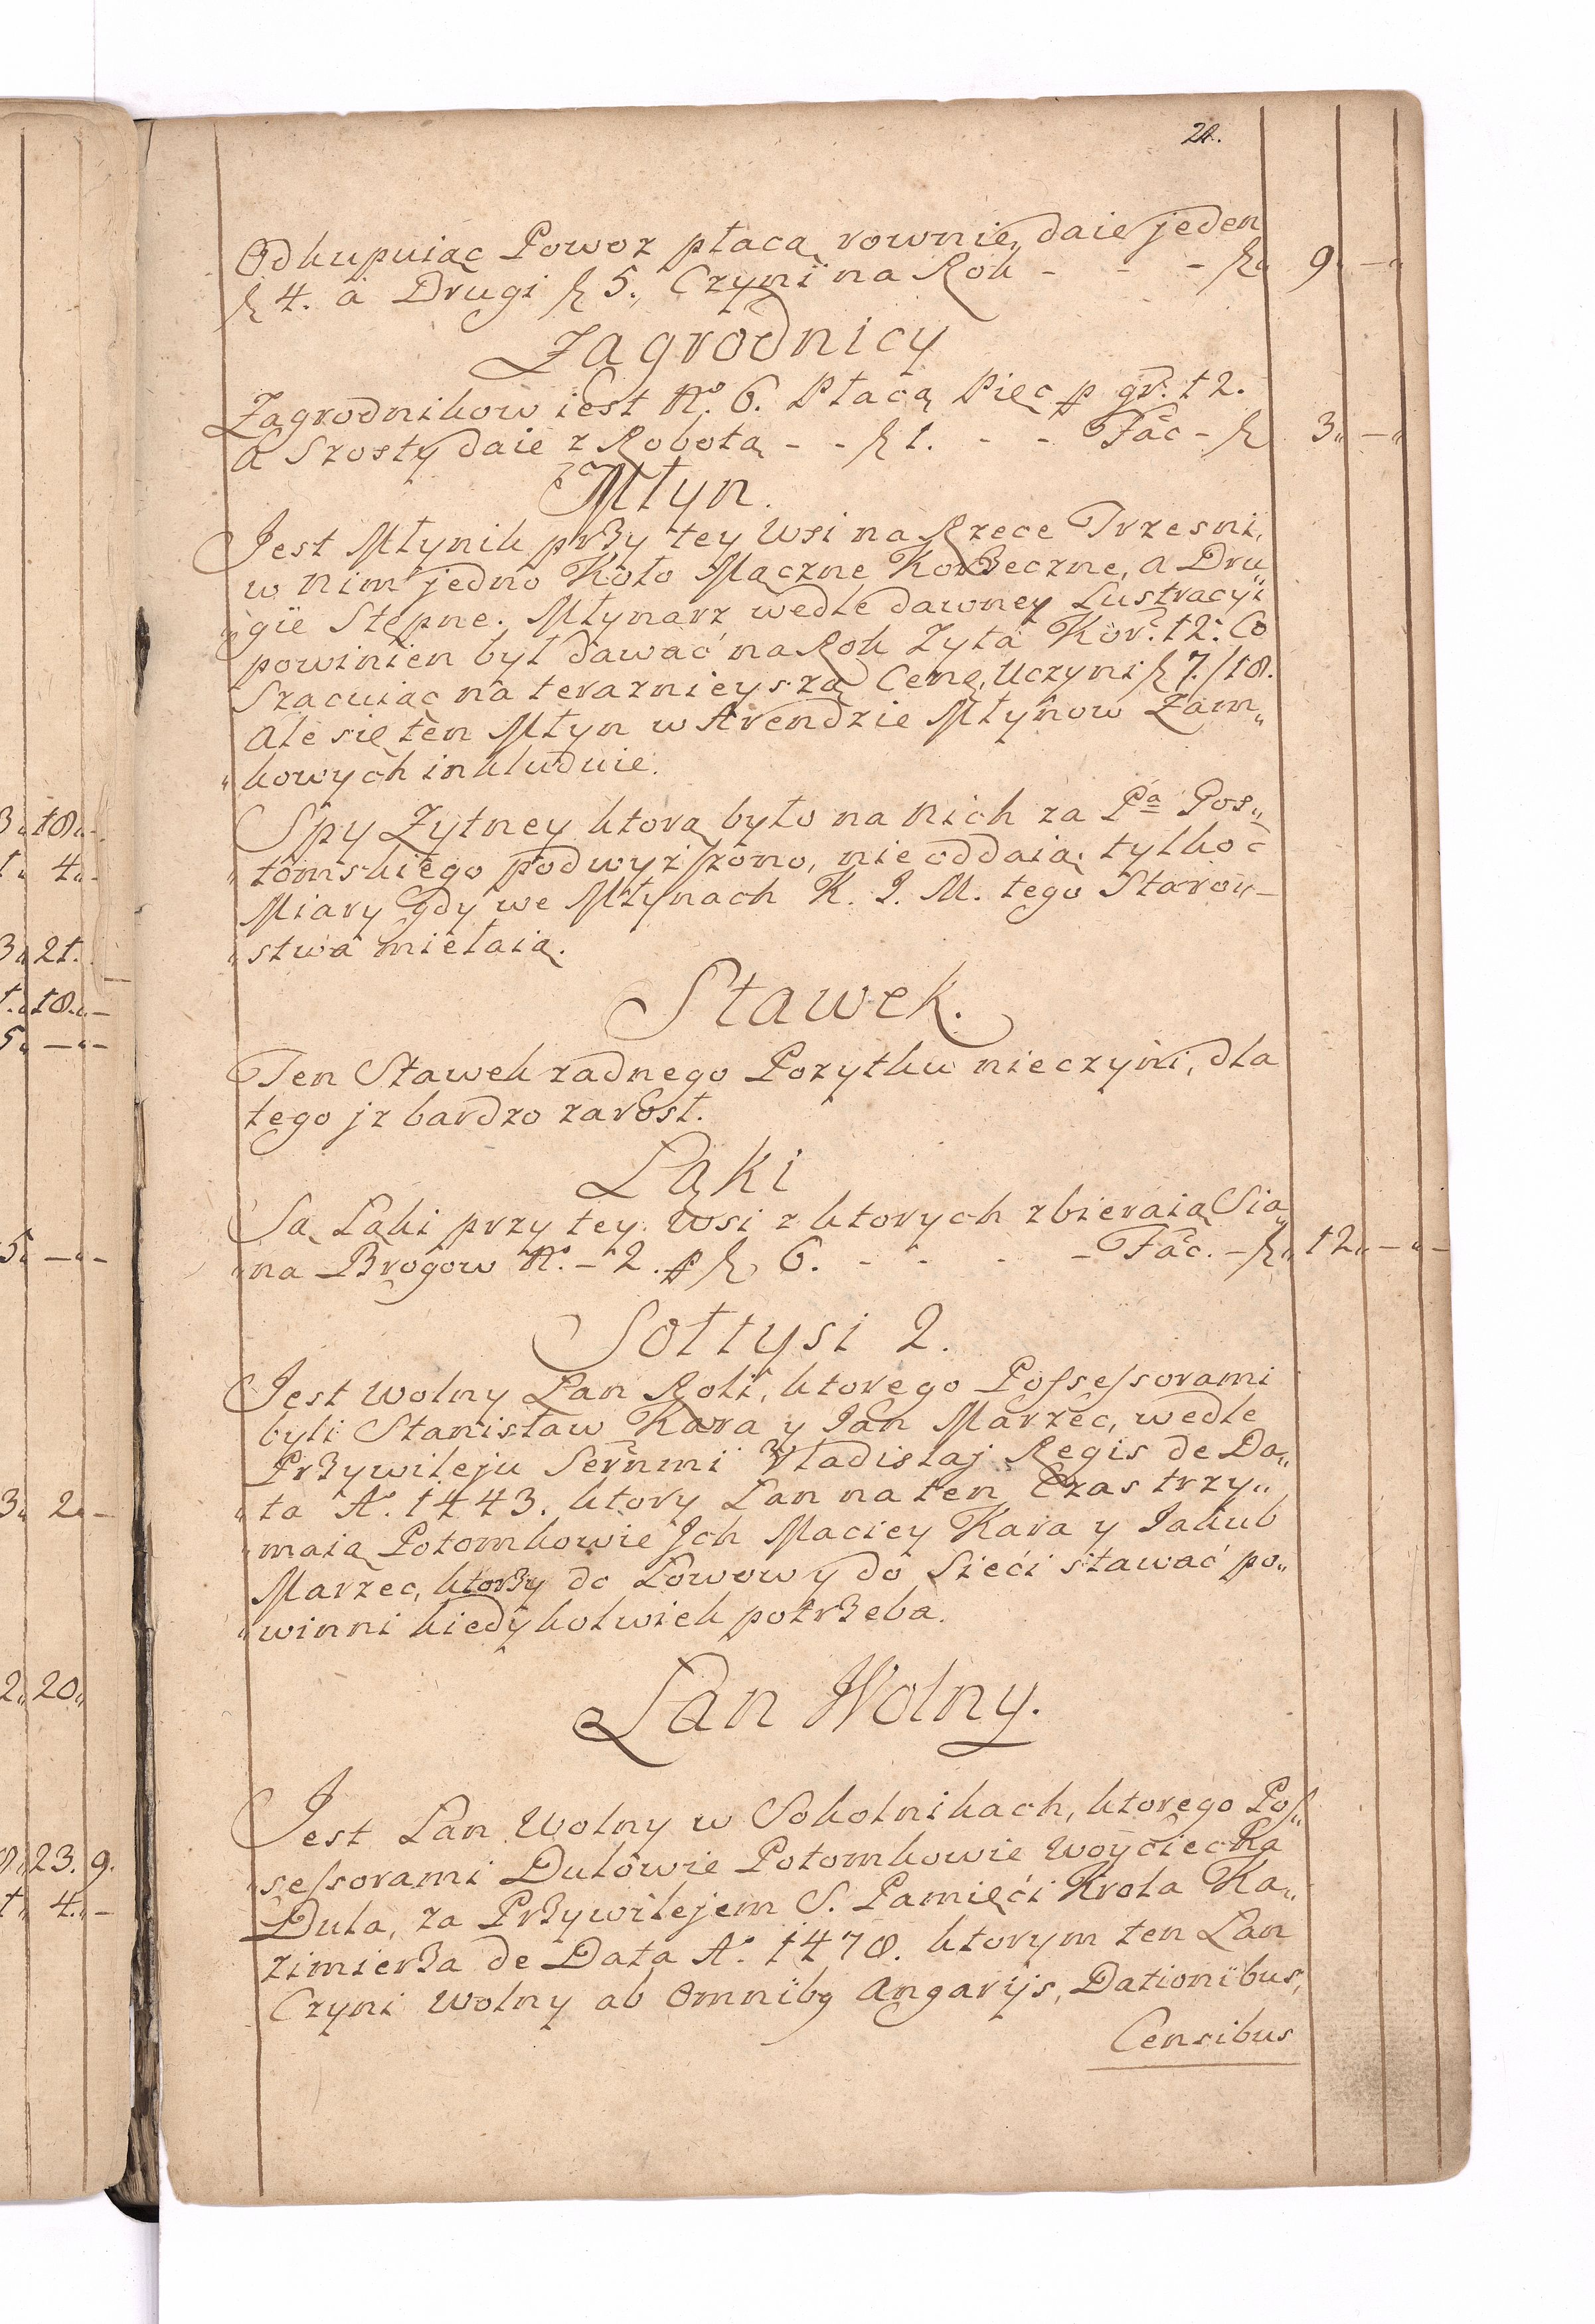 24.
Odkupuiąc Powoz płacą rownie, daie jeden
fl 4. a Drugi fl 5., Czyni na Rok - - - fl 9 „ — „
Zagrodnicy
Zagrodnikow iest No. 6. Płacą Pięc p gr. 12.
a Szosty daie z Robotą - - fl 1. - - Fac - fl 3 „ — „
Młyn.
Jest Młynik przy tey Wsi na Rzece Trzesni,
w nim jedno Koło Mączne Korzeczne, a Dru„
„gie Stępne. Młynarz wedle dawney Lustracyi
powinien był dawać na Rok Zyta Kor. 12. Co
Szacuiąc na teraznieyszą Cenę, Uczyni fl 7./18.
Ale się ten Młyn w Arendzie Młynow Zam„
„kowych inkluduie.
Spy Zytney ktorą było na nich za Pa Pos„
„tomskiego podwyzszono, nie oddaią, tylko c
Miary gdy we Młynach K. J. M. tego Staros-
„stwa mielaią.
Stawek.
Ten Stawek zadnego Pozytku nieczyni, dla
tego jz bardzo zarosł.
Łąki
Są Łąki przy tey Wsi z ktorych zbieraią Sia„
„na Brogow No. - 2. p fl 6. - - - - Fac. - fl „ 12 „ — „ —
Sołtysi 2.
Jest wolny Łan Roli, ktorego Possessorami
byli Stanisław Kara y Jan Marzec, wedle
Przywileju Sernmi Vladislaj Regis de Da„
„ta Ao. 1443. ktory Łan na ten Czas trzy„
„maią Potomkowie Jch Maciey Kara y Jakub
Marzec, ktorzy do Łowow y do Sieći stawać po„
„winni kiedykolwiek potrzeba.
Łan Wolny.
Jest Łan Wolny w Sokolnikach, ktorego Pos„
„sessorami Dulowie Potomkowie Woyciecha
Dula, za Przywilejem S. Pamięći Krola Ka„
zimierza de Data Ao. 1478. ktorym ten Łan
Czyni wolny ab Omnibg Angarijs, Dationibus,
Censibus